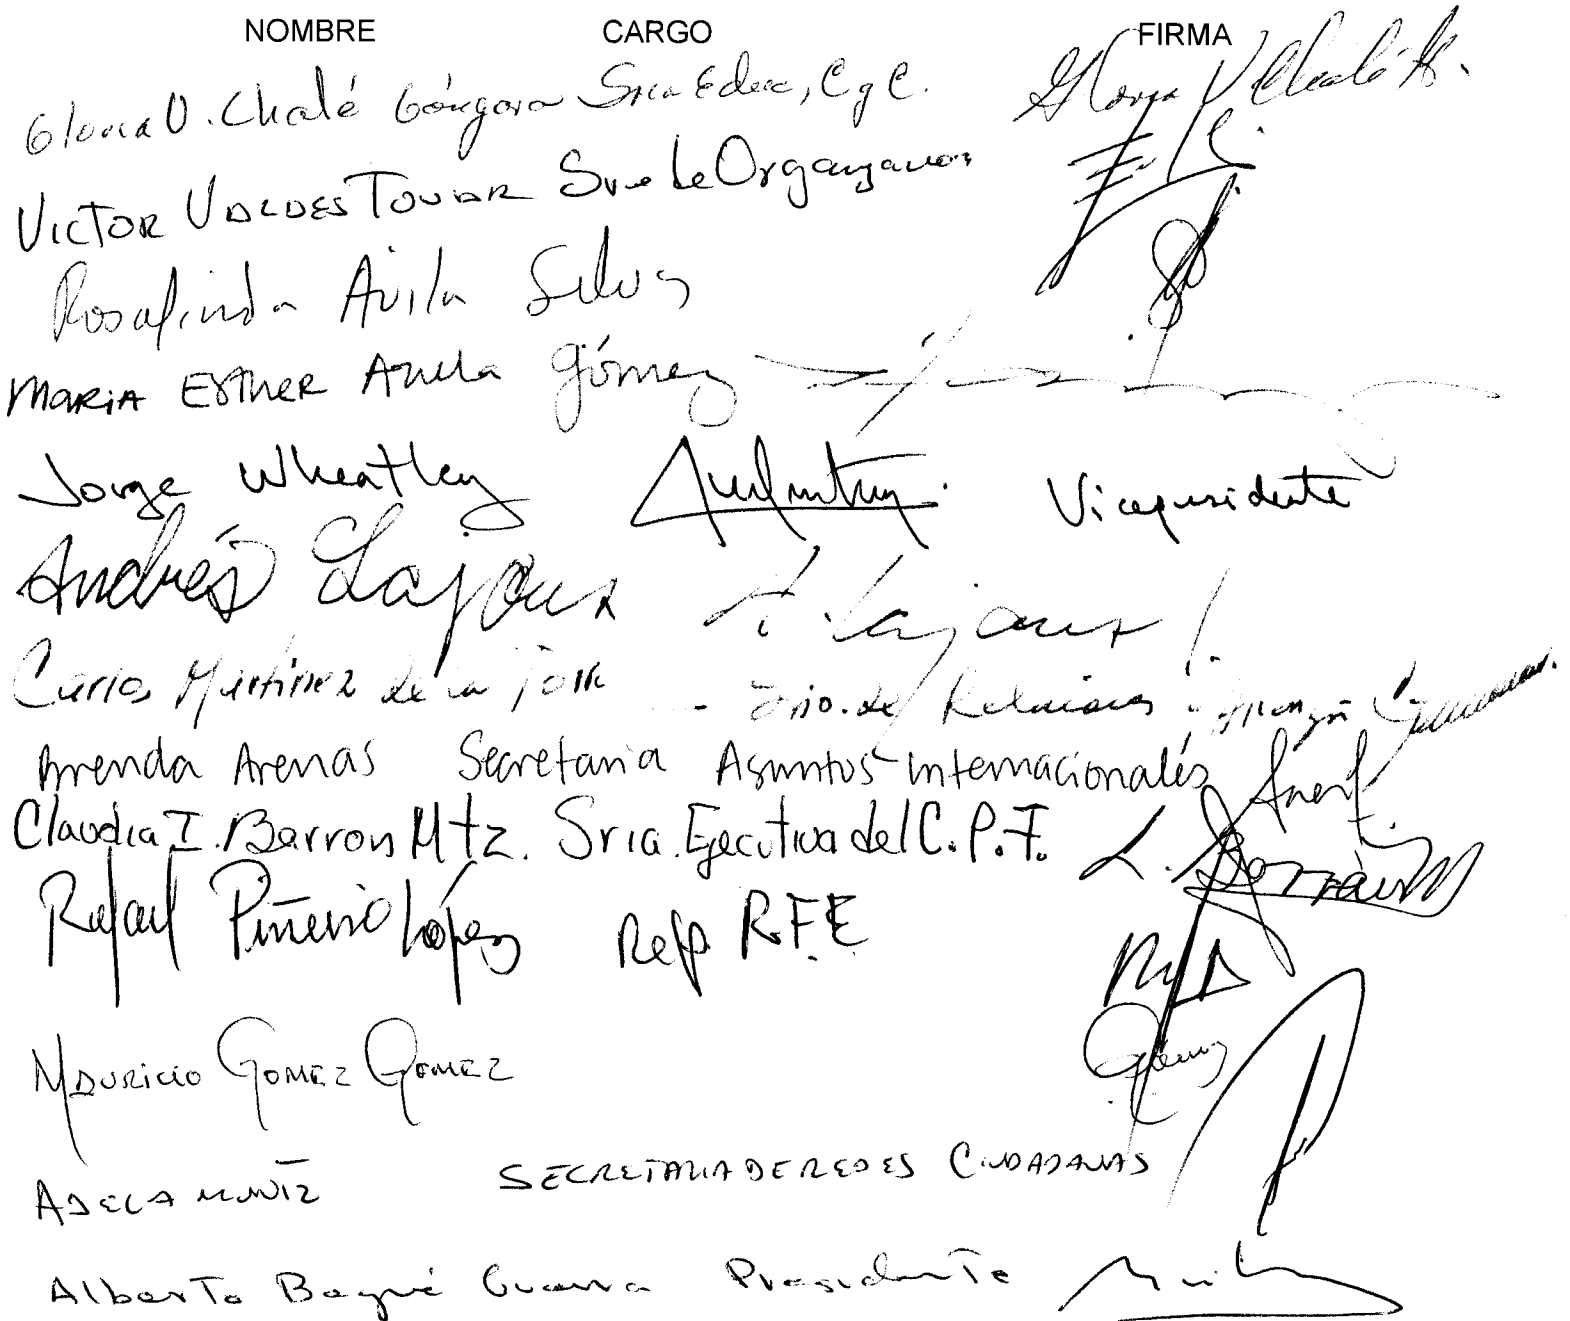 NOMBRE CARGO FIRMA
Gloria V. Chalé Góngora Sria Educ, C y C.
VICTOR VALDES TOVAR Srio de Organizacion
Rosalinda Avila Silva
MARIA ESTHER Gómez
Jorge Wheatley Vicepresidente
Andrés Lajous A Lajous
Carlos Martínez de la Torre Srio. de Relaciones
Brenda Arenas Secretaria Asuntos Internacionales
Claudia I. Barron Mtz. Sria. Ejecutiva del C.P.F.
Rafael Piñeiro López Rep R.F.E
MAURICIO GOMEZ GOMEZ
ADELA MUÑIZ SECRETARIA DE REDES CIUDADANAS
Alberto Begné Guerra Presidente